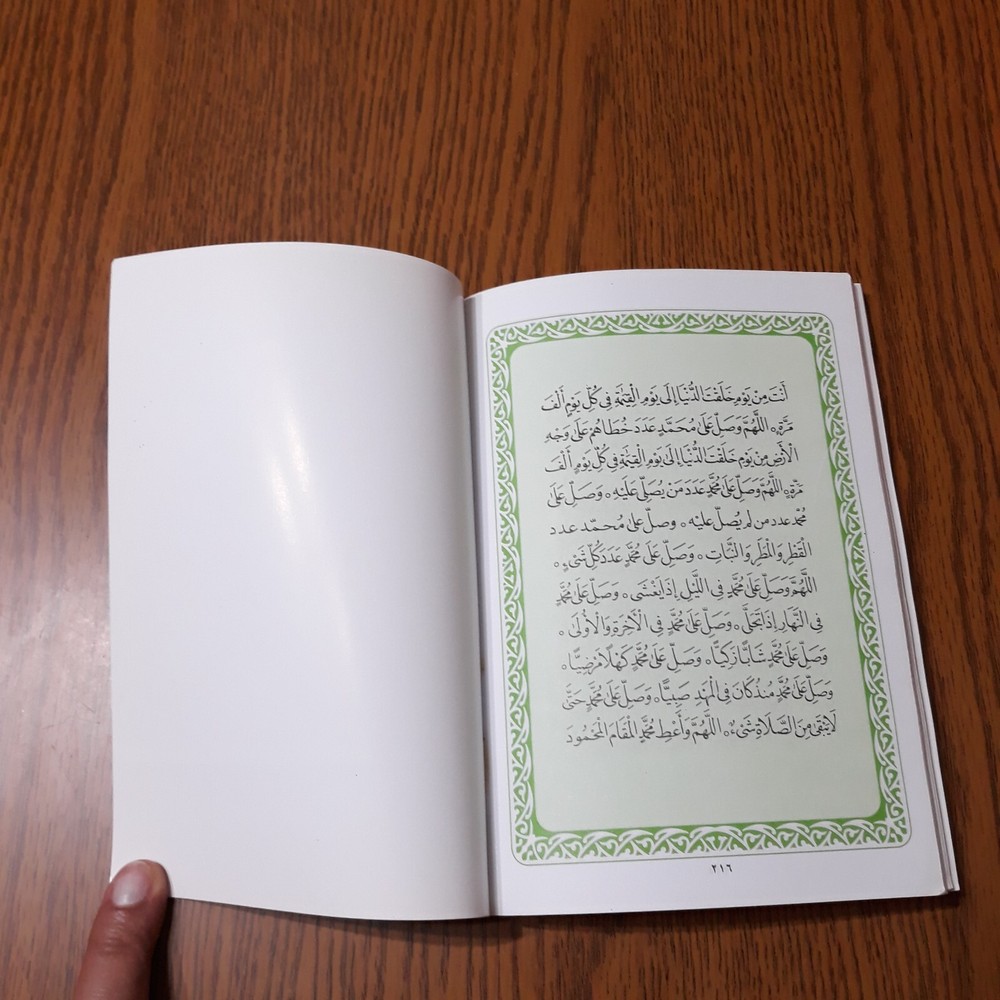 أَنْتَ مِنْ يَوْمِ خَلَقْتَ الدُّنْيَا إِلَى يَوْمِ الْقِيَٰمَةِ فِي كُلِّ يَوْمٍ أَلْفَ
مَرَّةٍ ۞ اللَّهُمَّ وَصَلِّ عَلَىٰ مُحَمَّدٍ عَدَدَ خُطَاهُمْ عَلَىٰ وَجْهِ
الْأَرْضِ مِنْ يَوْمِ خَلَقْتَ الدُّنْيَا إِلَى يَوْمِ الْقِيَٰمَةِ فِي كُلِّ يَوْمٍ أَلْفَ
مَرَّةٍ ۞ اللَّهُمَّ وَصَلِّ عَلَىٰ مُحَمَّدٍ عَدَدَ مَنْ يُصَلِّي عَلَيْهِ ۞ وَصَلِّ عَلَىٰ
مُحَمَّدٍ عَدَدَ مَنْ لَمْ يُصَلِّ عَلَيْهِ ۞ وَصَلِّ عَلَىٰ مُحَمَّدٍ عَدَدَ
الْقَطْرِ وَالْمَطَرِ وَالنَّبَاتِ ۞ وَصَلِّ عَلَىٰ مُحَمَّدٍ عَدَدَ كُلِّ شَيْءٍ ۞
اللَّهُمَّ وَصَلِّ عَلَىٰ مُحَمَّدٍ فِي اللَّيْلِ إِذَا يَغْشَى ۞ وَصَلِّ عَلَىٰ مُحَمَّدٍ
فِي النَّهَارِ إِذَا تَجَلَّى ۞ وَصَلِّ عَلَىٰ مُحَمَّدٍ فِي الْآخِرَةِ وَالْأُولَىٰ ۞
وَصَلِّ عَلَىٰ مُحَمَّدٍ شَابًّا زَكِيًّا ۞ وَصَلِّ عَلَىٰ مُحَمَّدٍ كَهْلًا مَرْضِيًّا ۞
وَصَلِّ عَلَىٰ مُحَمَّدٍ مُنْذُ كَانَ فِي الْمَهْدِ صَبِيًّا ۞ وَصَلِّ عَلَىٰ مُحَمَّدٍ حَتَّىٰ
لَا يَبْقَىٰ مِنَ الصَّلَاةِ شَيْءٌ ۞ اللَّهُمَّ وَأَعْطِ مُحَمَّدًا الْمَقَامَ الْمَحْمُودَ
٢١٦